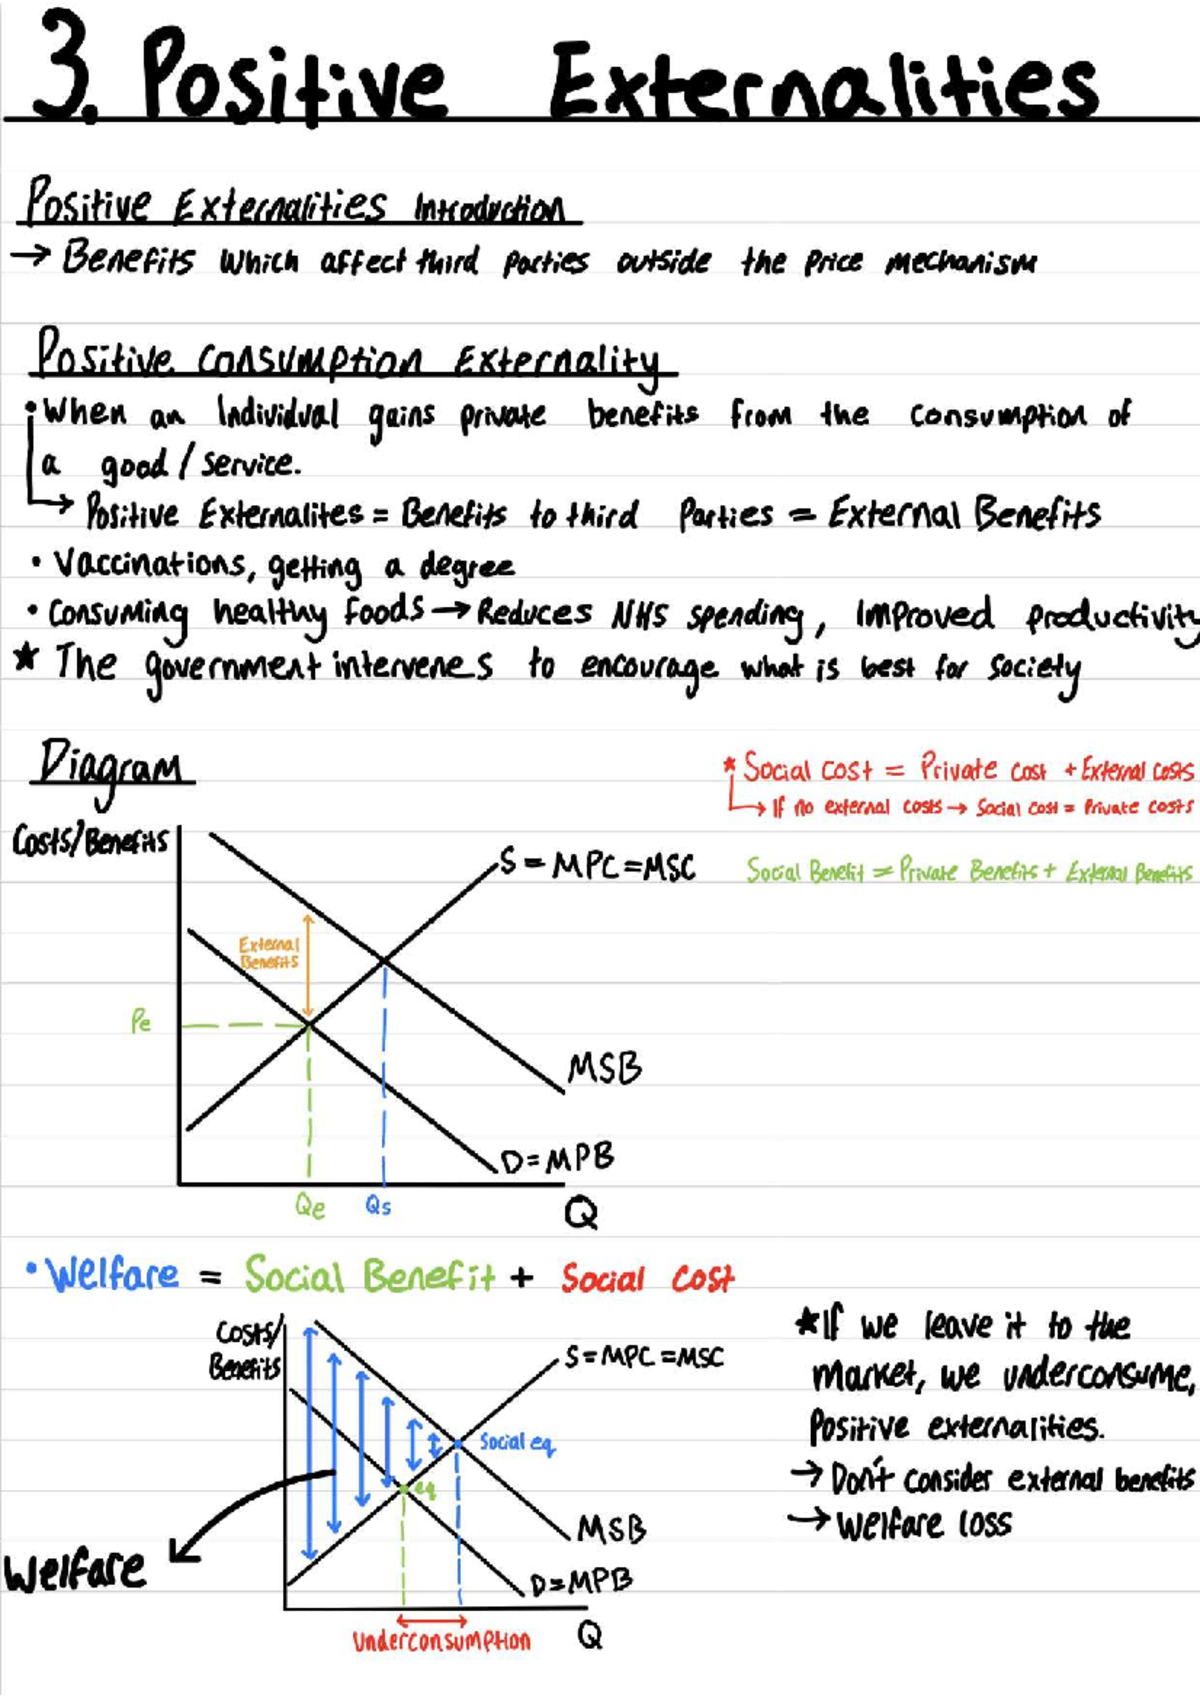 3. Positive Externalities
Positive Externalities Introduction
→ Benefits which affect third parties outside the price mechanism
Positive Consumption Externality
• When an Individual gains private benefits from the consumption of
a good / service.
→ Positive Externalites = Benefits to third Parties = External Benefits
• Vaccinations, getting a degree
• Consuming healthy foods → Reduces NHS spending, Improved productivity
★ The government intervenes to encourage what is best for society
Diagram
★ Social cost = Private cost + External costs
→ If no external costs → Social cost = Private costs
Social Benefit = Private Benefits + External Benefits
Costs/Benefits
S = MPC = MSC
External
Benefits
Pe
MSB
D = MPB
Qe
Qs
Q
• Welfare = Social Benefit + Social cost
Costs/
Benefits
S = MPC = MSC
Social eq
eq
MSB
D = MPB
Welfare
Underconsumption
Q
★ If we leave it to the
market, we underconsume,
Positive externalities.
→ Don't consider external benefits
→ Welfare loss